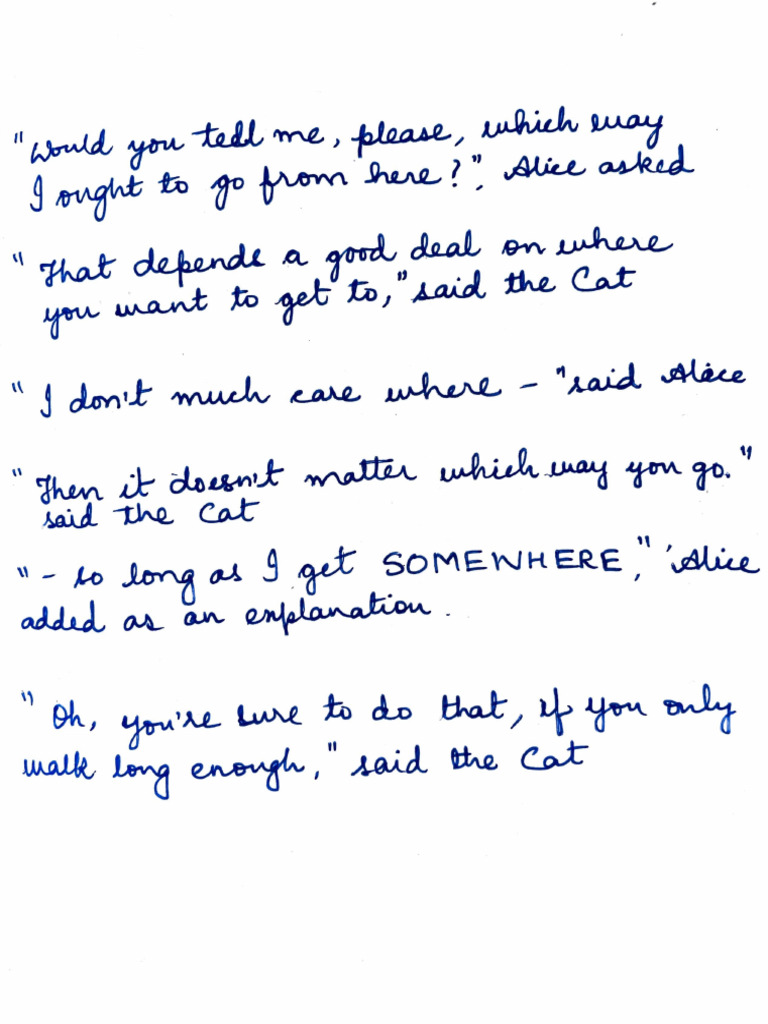 "Would you tell me, please, which way
I ought to go from here?", Alice asked
"That depends a good deal on where
you want to get to," said the Cat
"I don't much care where - "said Alice
"Then it doesn't matter which way you go."
said the Cat
"- so long as I get SOMEWHERE," Alice
added as an explanation.
"Oh, you're sure to do that, if you only
walk long enough," said the Cat